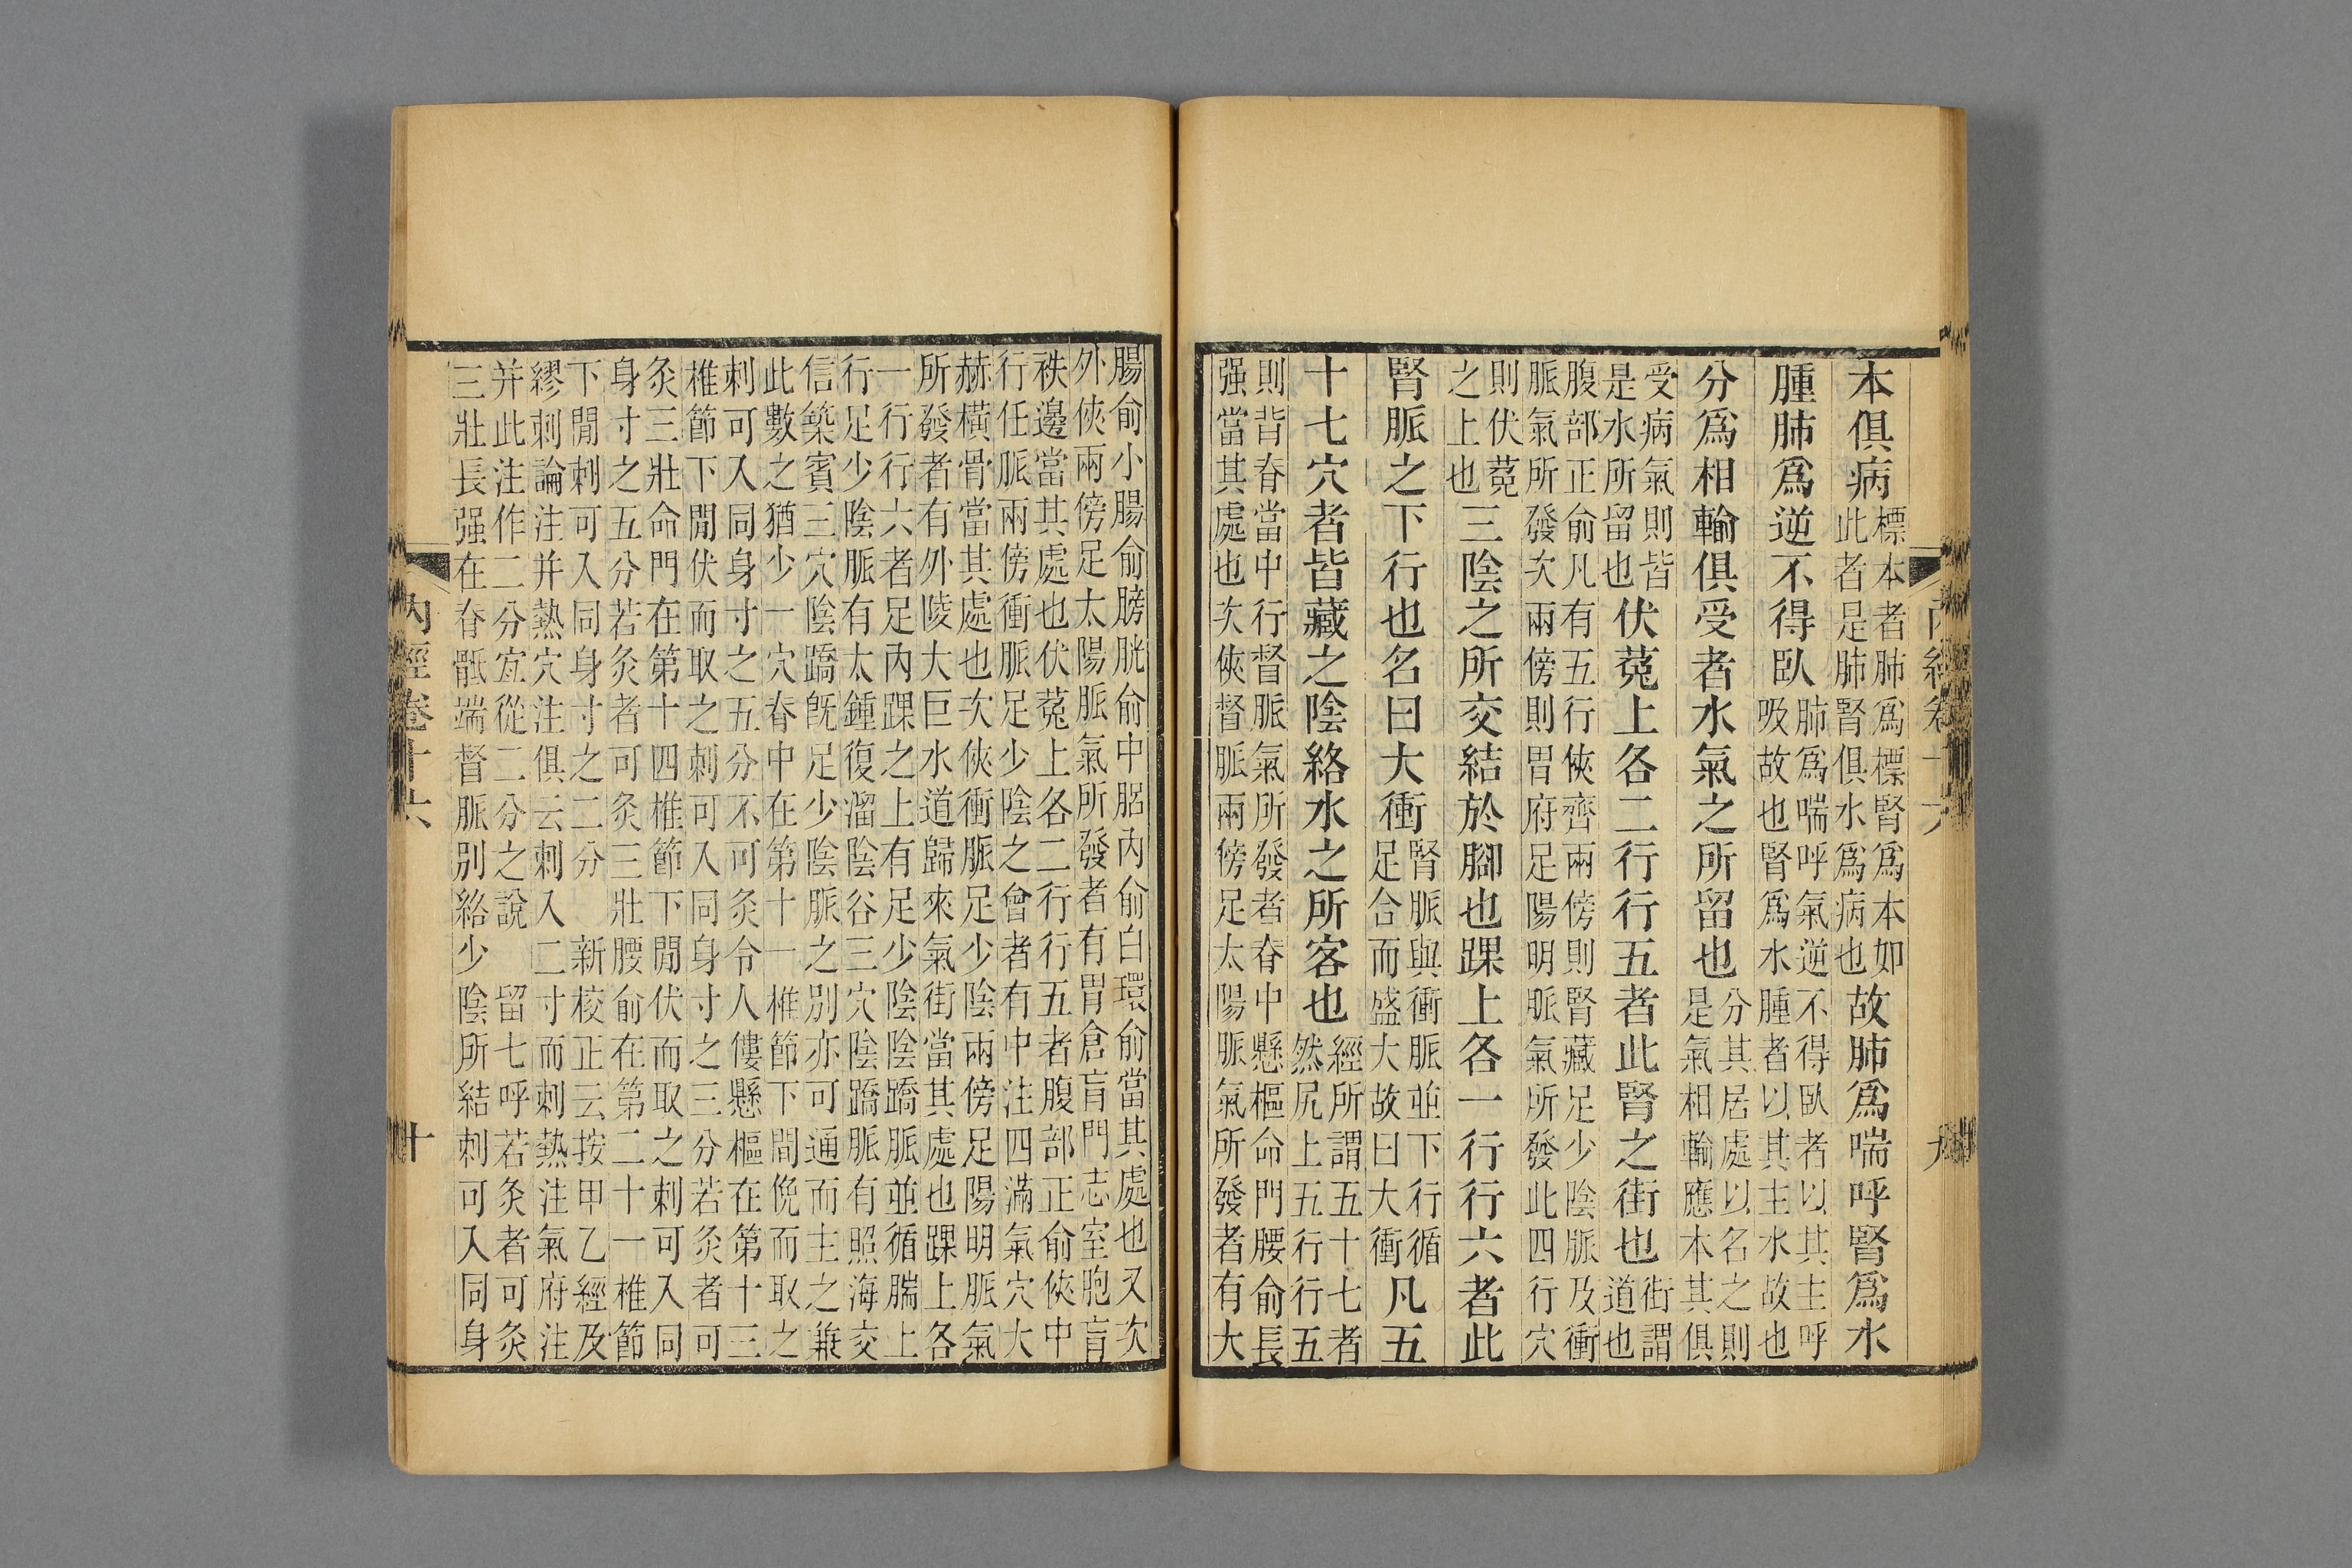 內經卷十六 九
本俱病標本者肺爲標腎爲本如
此者是肺腎俱水爲病也故肺爲喘呼腎爲水
腫肺爲逆不得臥肺爲喘呼氣逆不得臥者以其主呼
吸故也腎爲水腫者以其主水故也
分爲相輸俱受者水氣之所留也分其居處以名之則
是氣相輸應本其俱
受病氣則皆
是水所留也伏菟上各二行行五者此腎之街也街謂
道也
腹部正俞凡有五行俠齊兩傍則腎藏足少陰脈及衝
脈氣所發次兩傍則胃府足陽明脈氣所發此四行穴
則伏菟
之上也三陰之所交結於腳也踝上各一行行六者此
腎脈之下行也名曰大衝腎脈與衝脈並下行循
足合而盛大故曰大衝凡五
十七穴者皆藏之陰絡水之所客也經所謂五十七者
然尻上五行行五
則背脊當中行督脈氣所發者脊中懸樞命門腰俞長
强當其處也次俠督脈兩傍足太陽脈氣所發者有大
腸俞小腸俞膀胱俞中䏚內俞白環俞當其處也又次
外俠兩傍足太陽脈氣所發者有胃倉肓門志室胞肓
秩邊當其處也伏菟上各二行行五者腹部正俞俠中
行任脈兩傍衝脈足少陰之會者有中注四滿氣穴大
赫橫骨當其處也次俠衝脈足少陰兩傍足陽明脈氣
所發者有外陵大巨水道歸來氣街當其處也踝上各
一行行六者足內踝之上有足少陰陰蹻脈並循腨上
行足少陰脈有太鍾復溜陰谷三穴陰蹻脈有照海交
信築賓三穴陰蹻旣足少陰脈之別亦可通而主之兼
此數之猶少一穴脊中在第十一椎節下間俛而取之
刺可入同身寸之五分不可灸令人僂懸樞在第十三
椎節下閒伏而取之刺可入同身寸之三分若灸者可
灸三壯命門在第十四椎節下閒伏而取之刺可入同
身寸之五分若灸者可灸三壯腰俞在第二十一椎節
下閒刺可入同身寸之二分 新校正云按甲乙經及
繆刺論注并熱穴注俱云刺入二寸而刺熱注氣府注
并此注作二分宜從二分之說 留七呼若灸者可灸
三壯長强在脊骶端督脈別絡少陰所結刺可入同身
內經卷十六 十